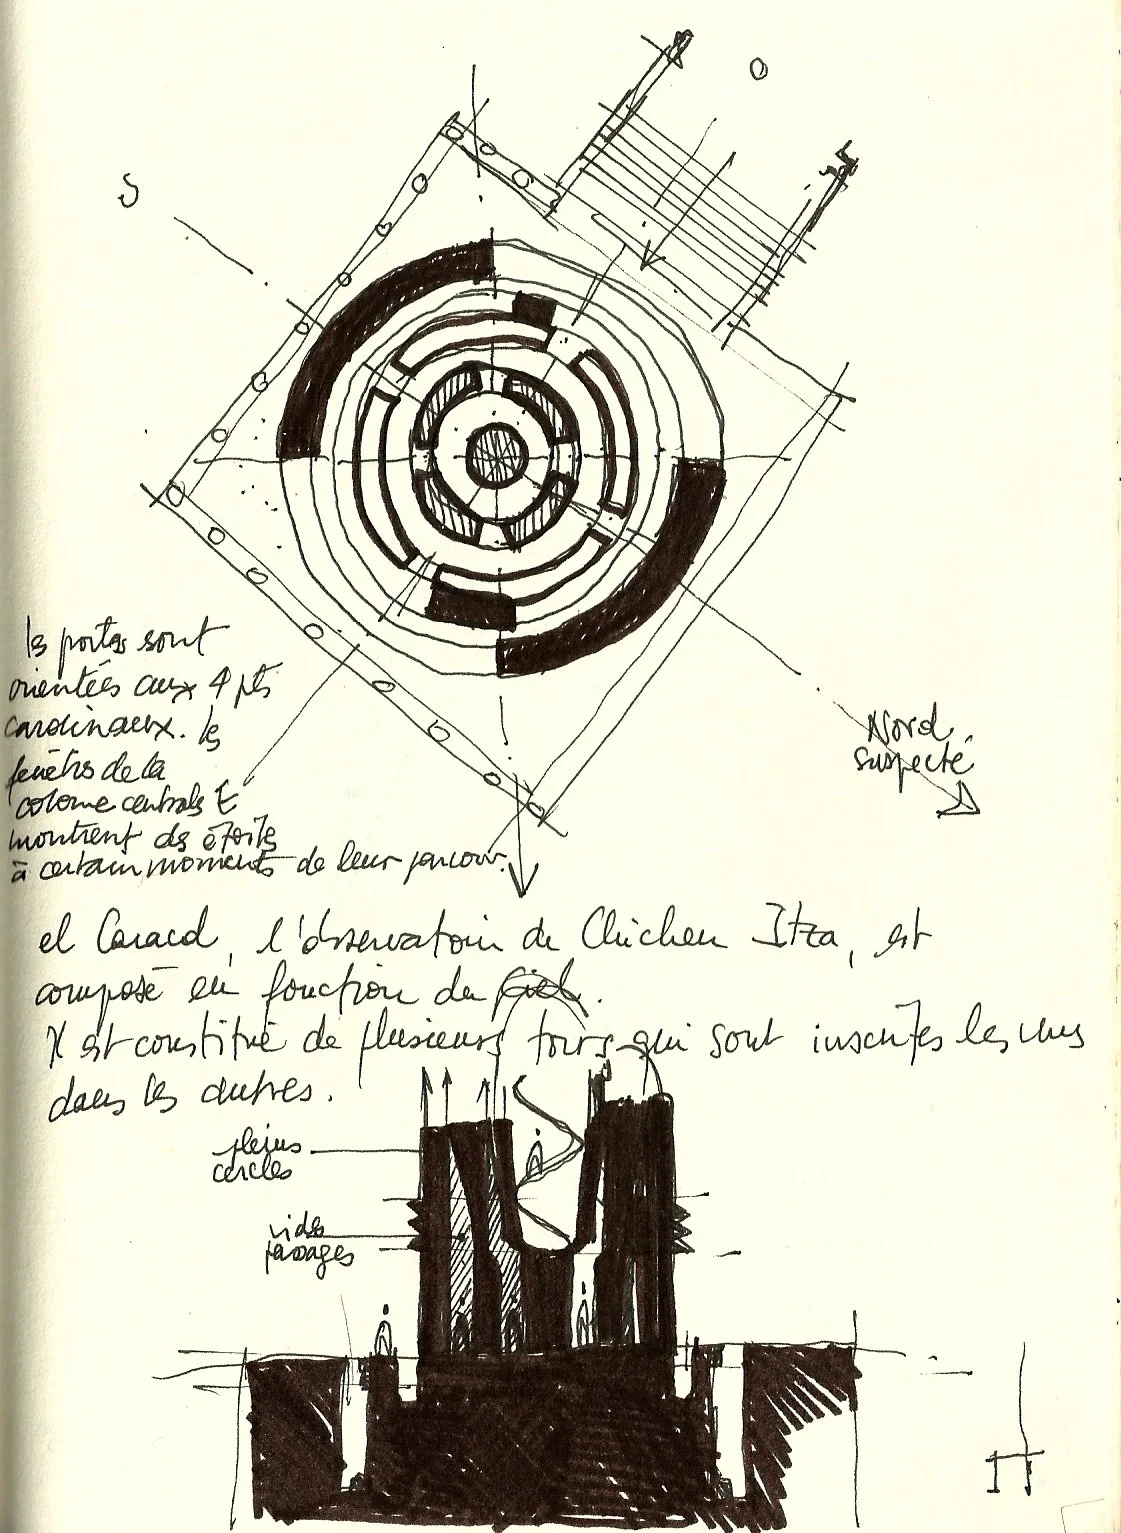 O
S
Nord
suspecté
les portes sont
orientées aux 4 pts
cardinaux. les
fenêtres de la
colonne centrale E
montrent des étoiles
à certain moments de leur parcour.
el Caracol, l'observatoire de Chichen Itza, est
composé en fonction du ciel.
Il est constitué de plusieurs tours qui sont inscrites les unes
dans les autres.
pleins
cercles
vides
passages